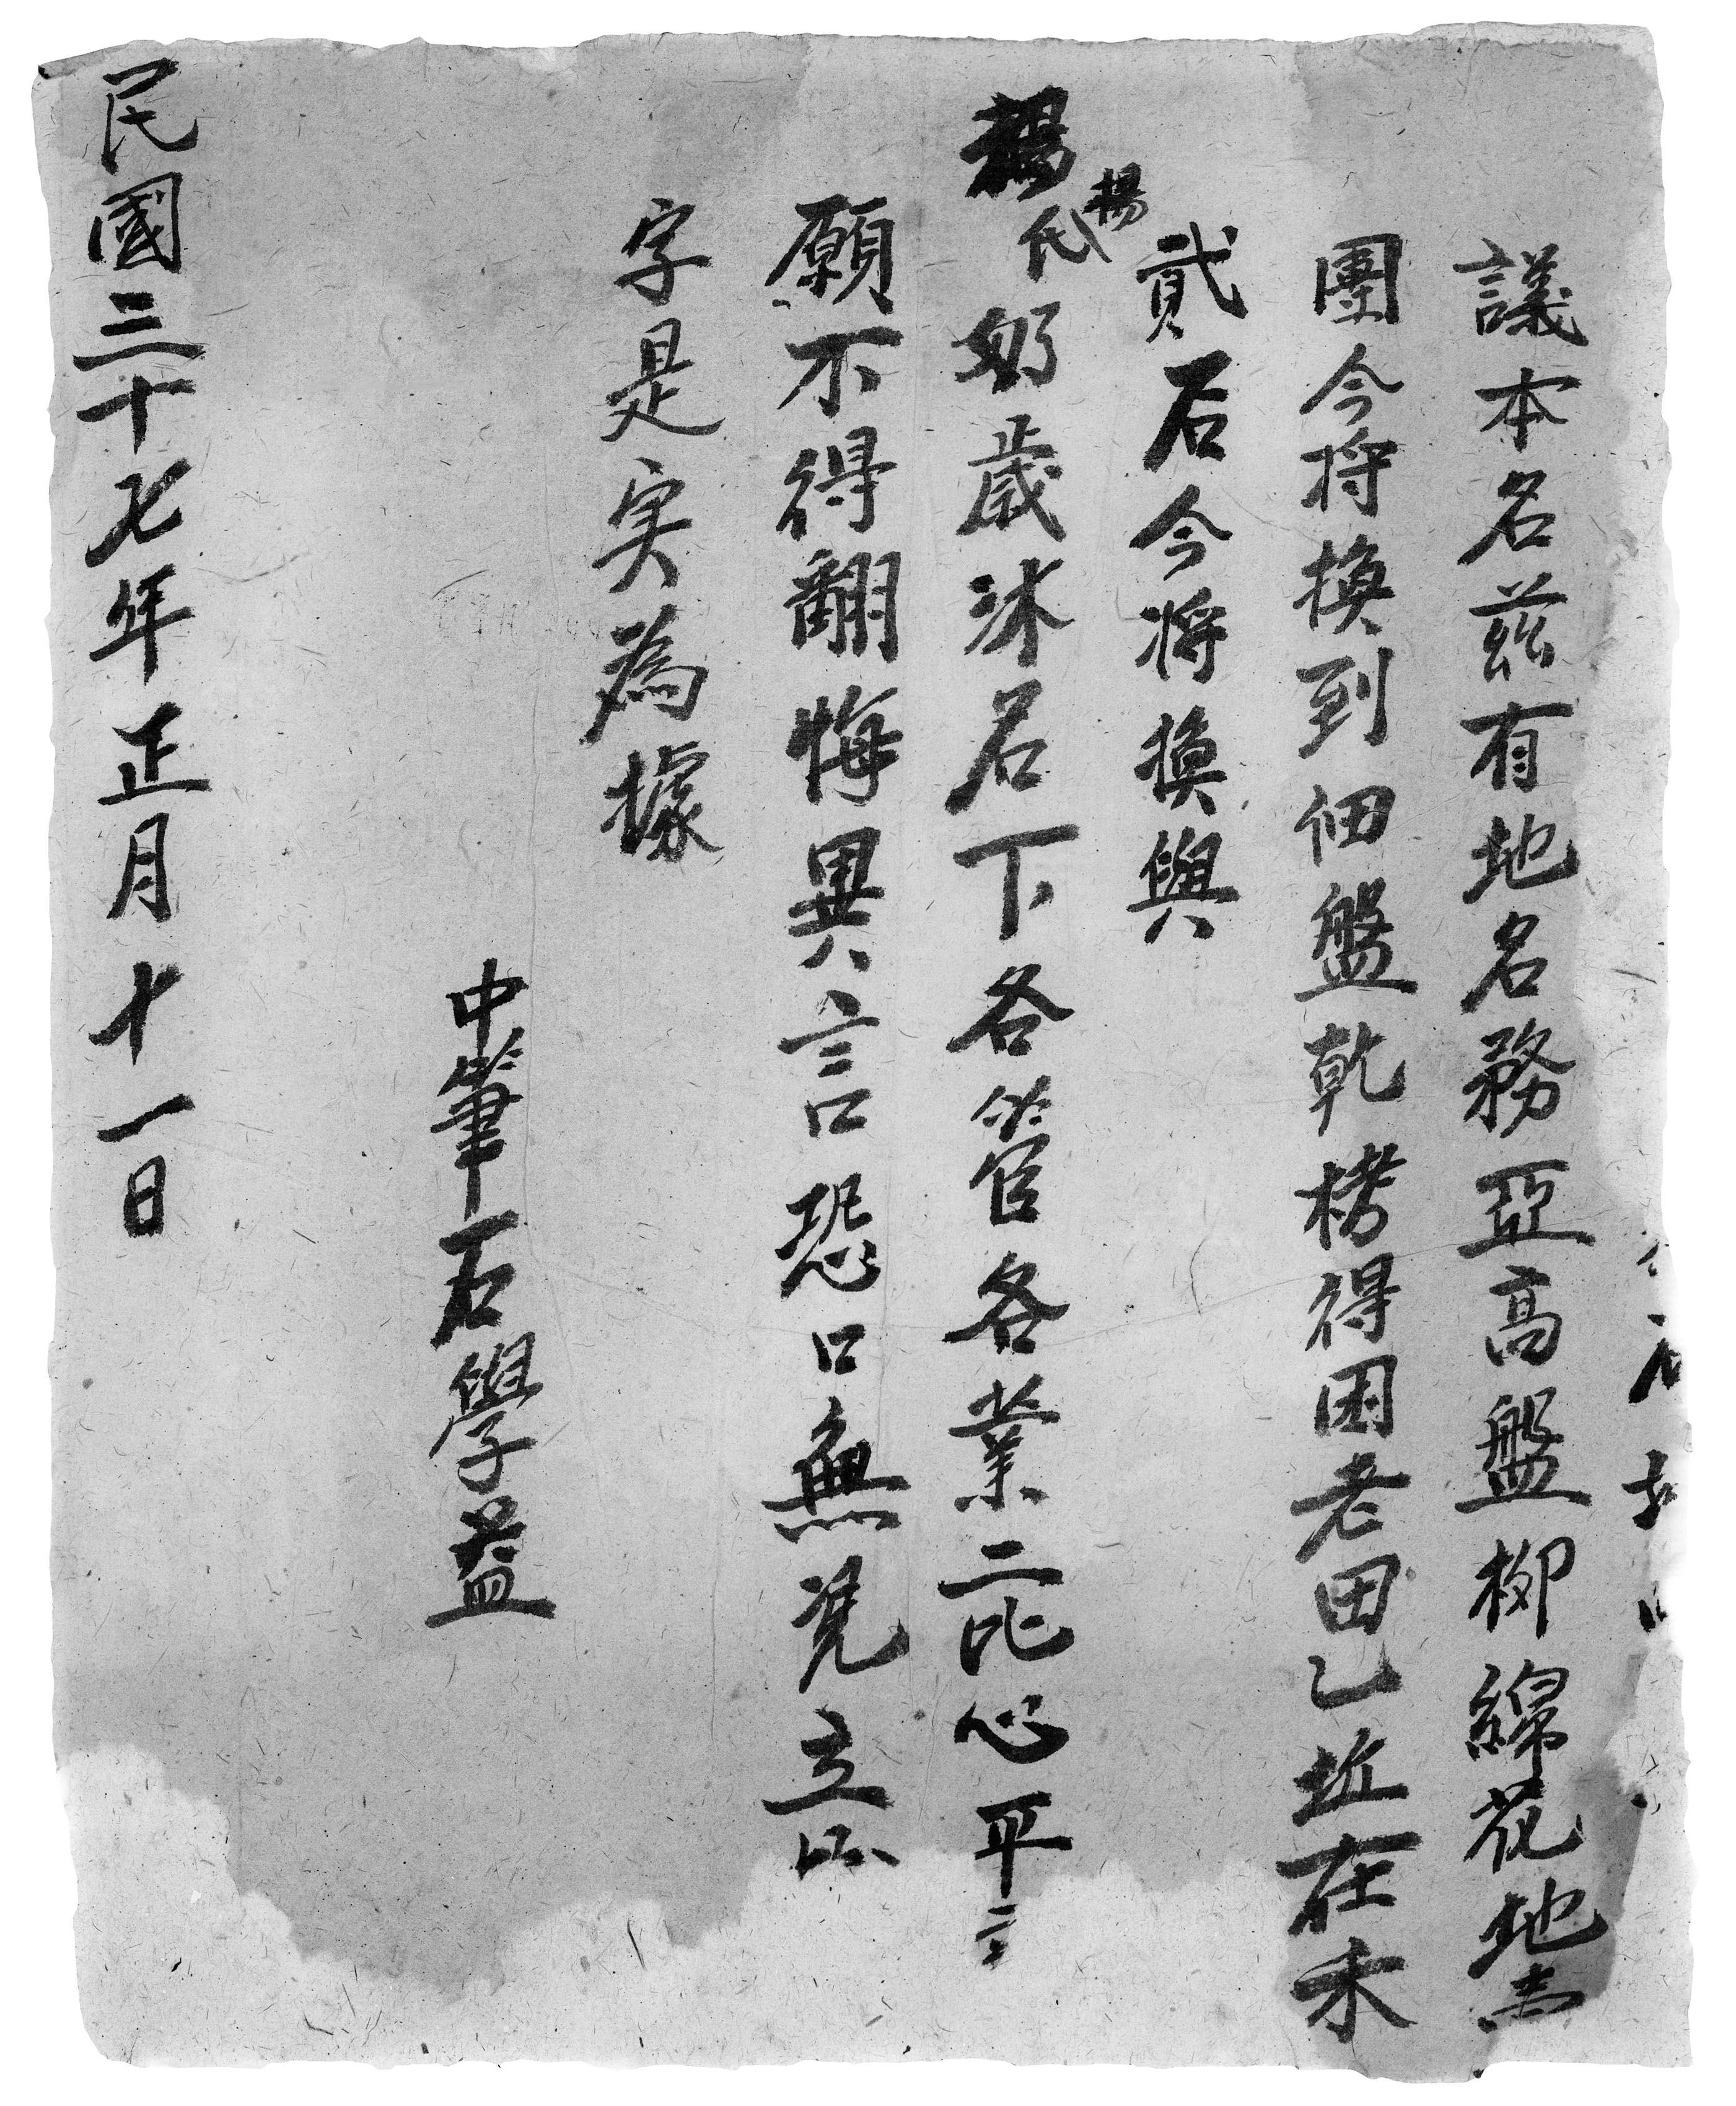 議本名兹有地名務亞高盤柳綿花地壹
團今将換到佃盤乾楞得困老田乙坵在禾
貳石今将換與
楊氏
奶歲沐名下各管各業二比心平
願不得翻悔異言恐口無凴立
字是实為據
中筆石學益
民國三十七年正月十一日